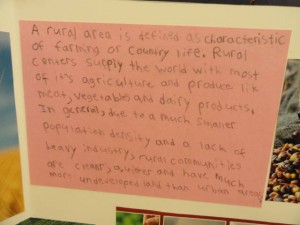 A rural area is defined as characteristic
of farming or country life. Rural
centers supply the world with most
of it's agriculture and produce lik
meat, vegetables and dairy products.
In general, due to a much smaller
population density and a lack of
heavy industry, rural communities
are cleaner, quieter and have much
more undeveloped land than urban areas.